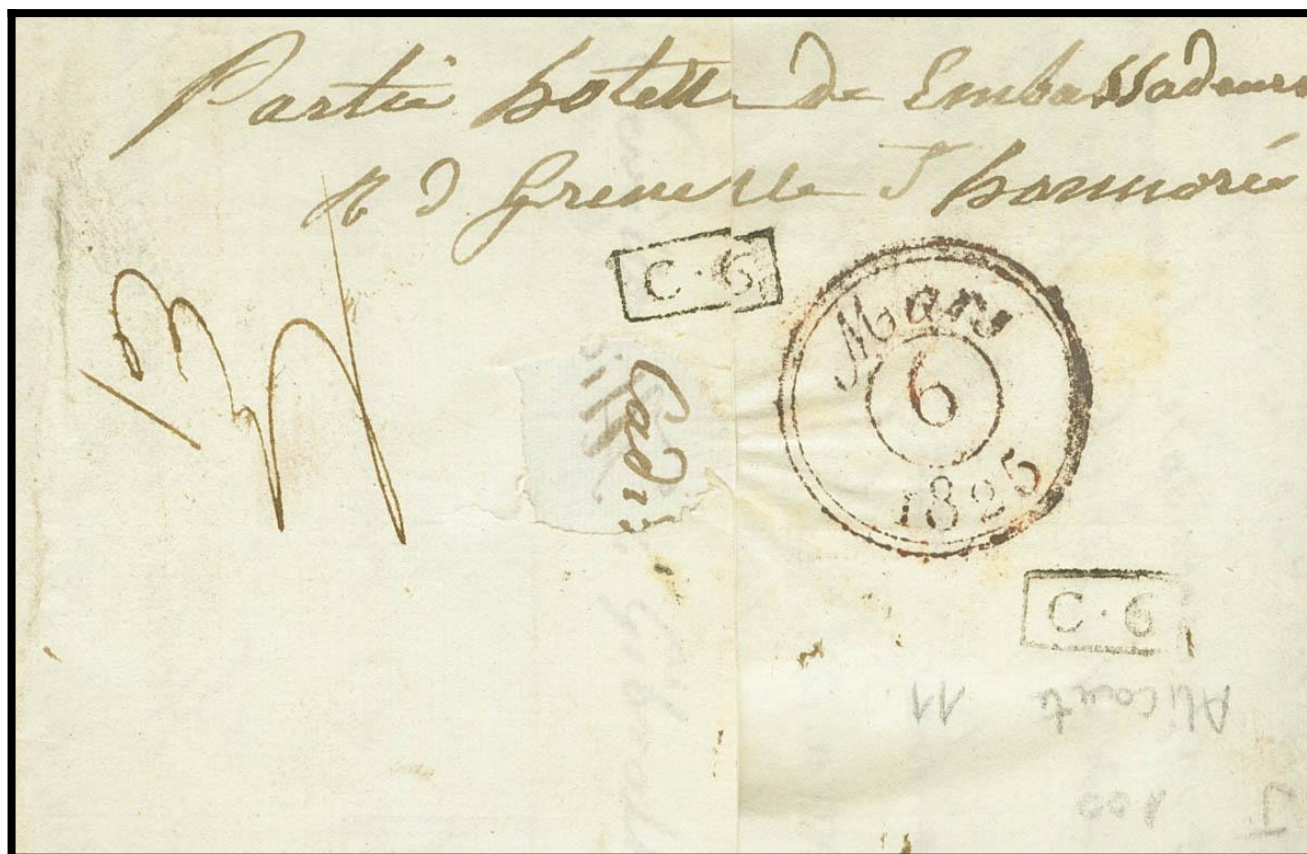 Partie hotell de Embassadeurs
R d Grenelle S honnoré
C·6
Mars
6
1825
C·6
Alicante 11
100